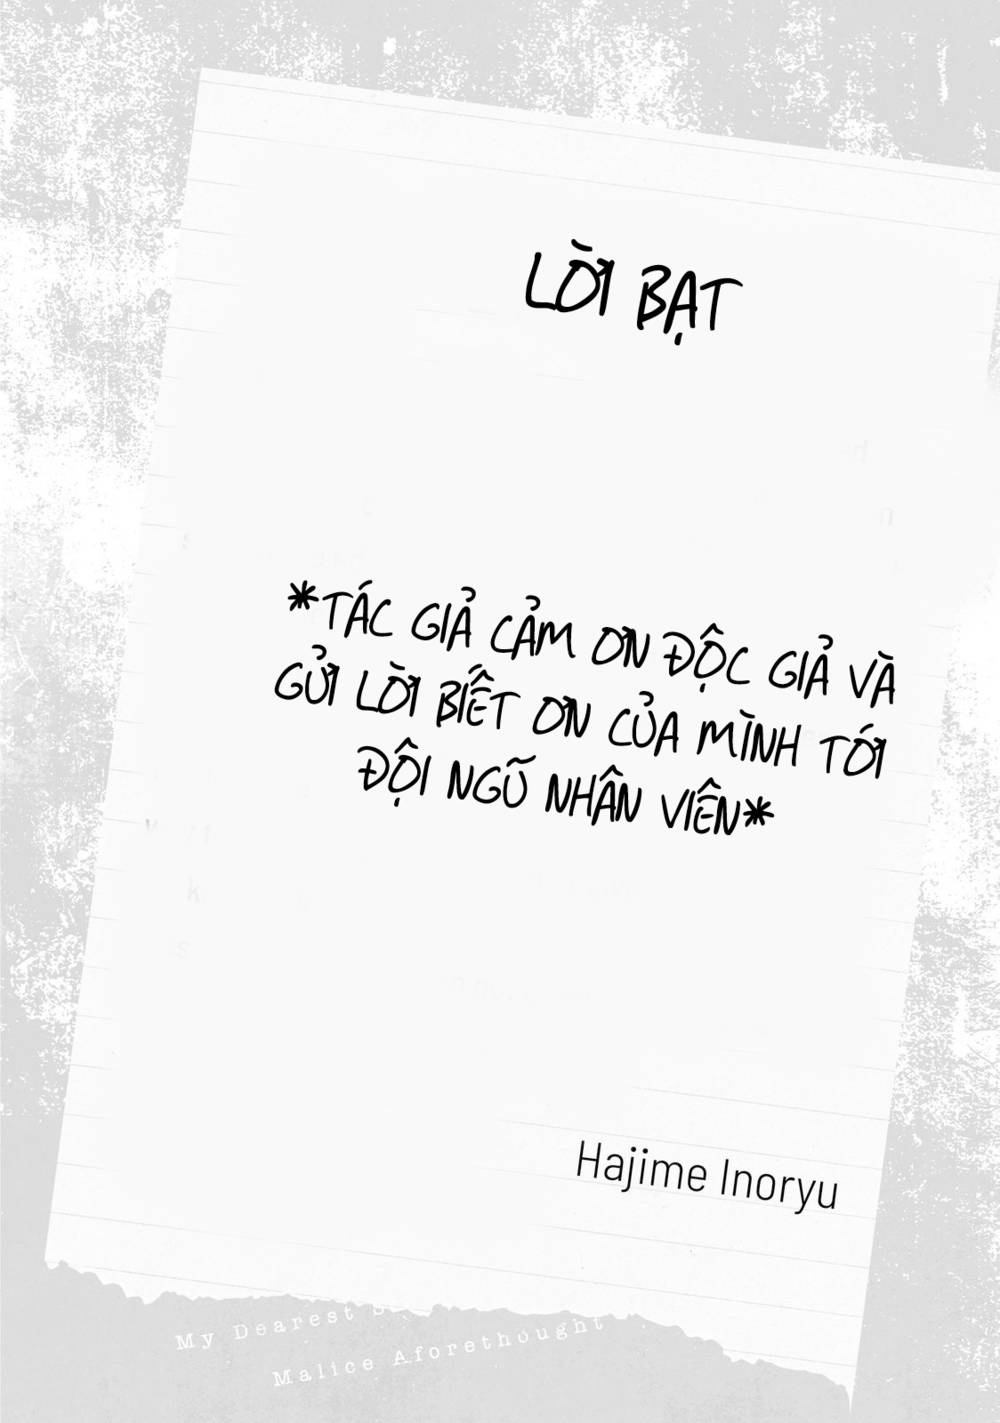 LỜI BẠT
*TÁC GIẢ CẢM ƠN ĐỘC GIẢ VÀ
GỬI LỜI BIẾT ƠN CỦA MÌNH TỚI
ĐỘI NGŨ NHÂN VIÊN*
Hajime Inoryu
My Dearest
Malice Aforethought